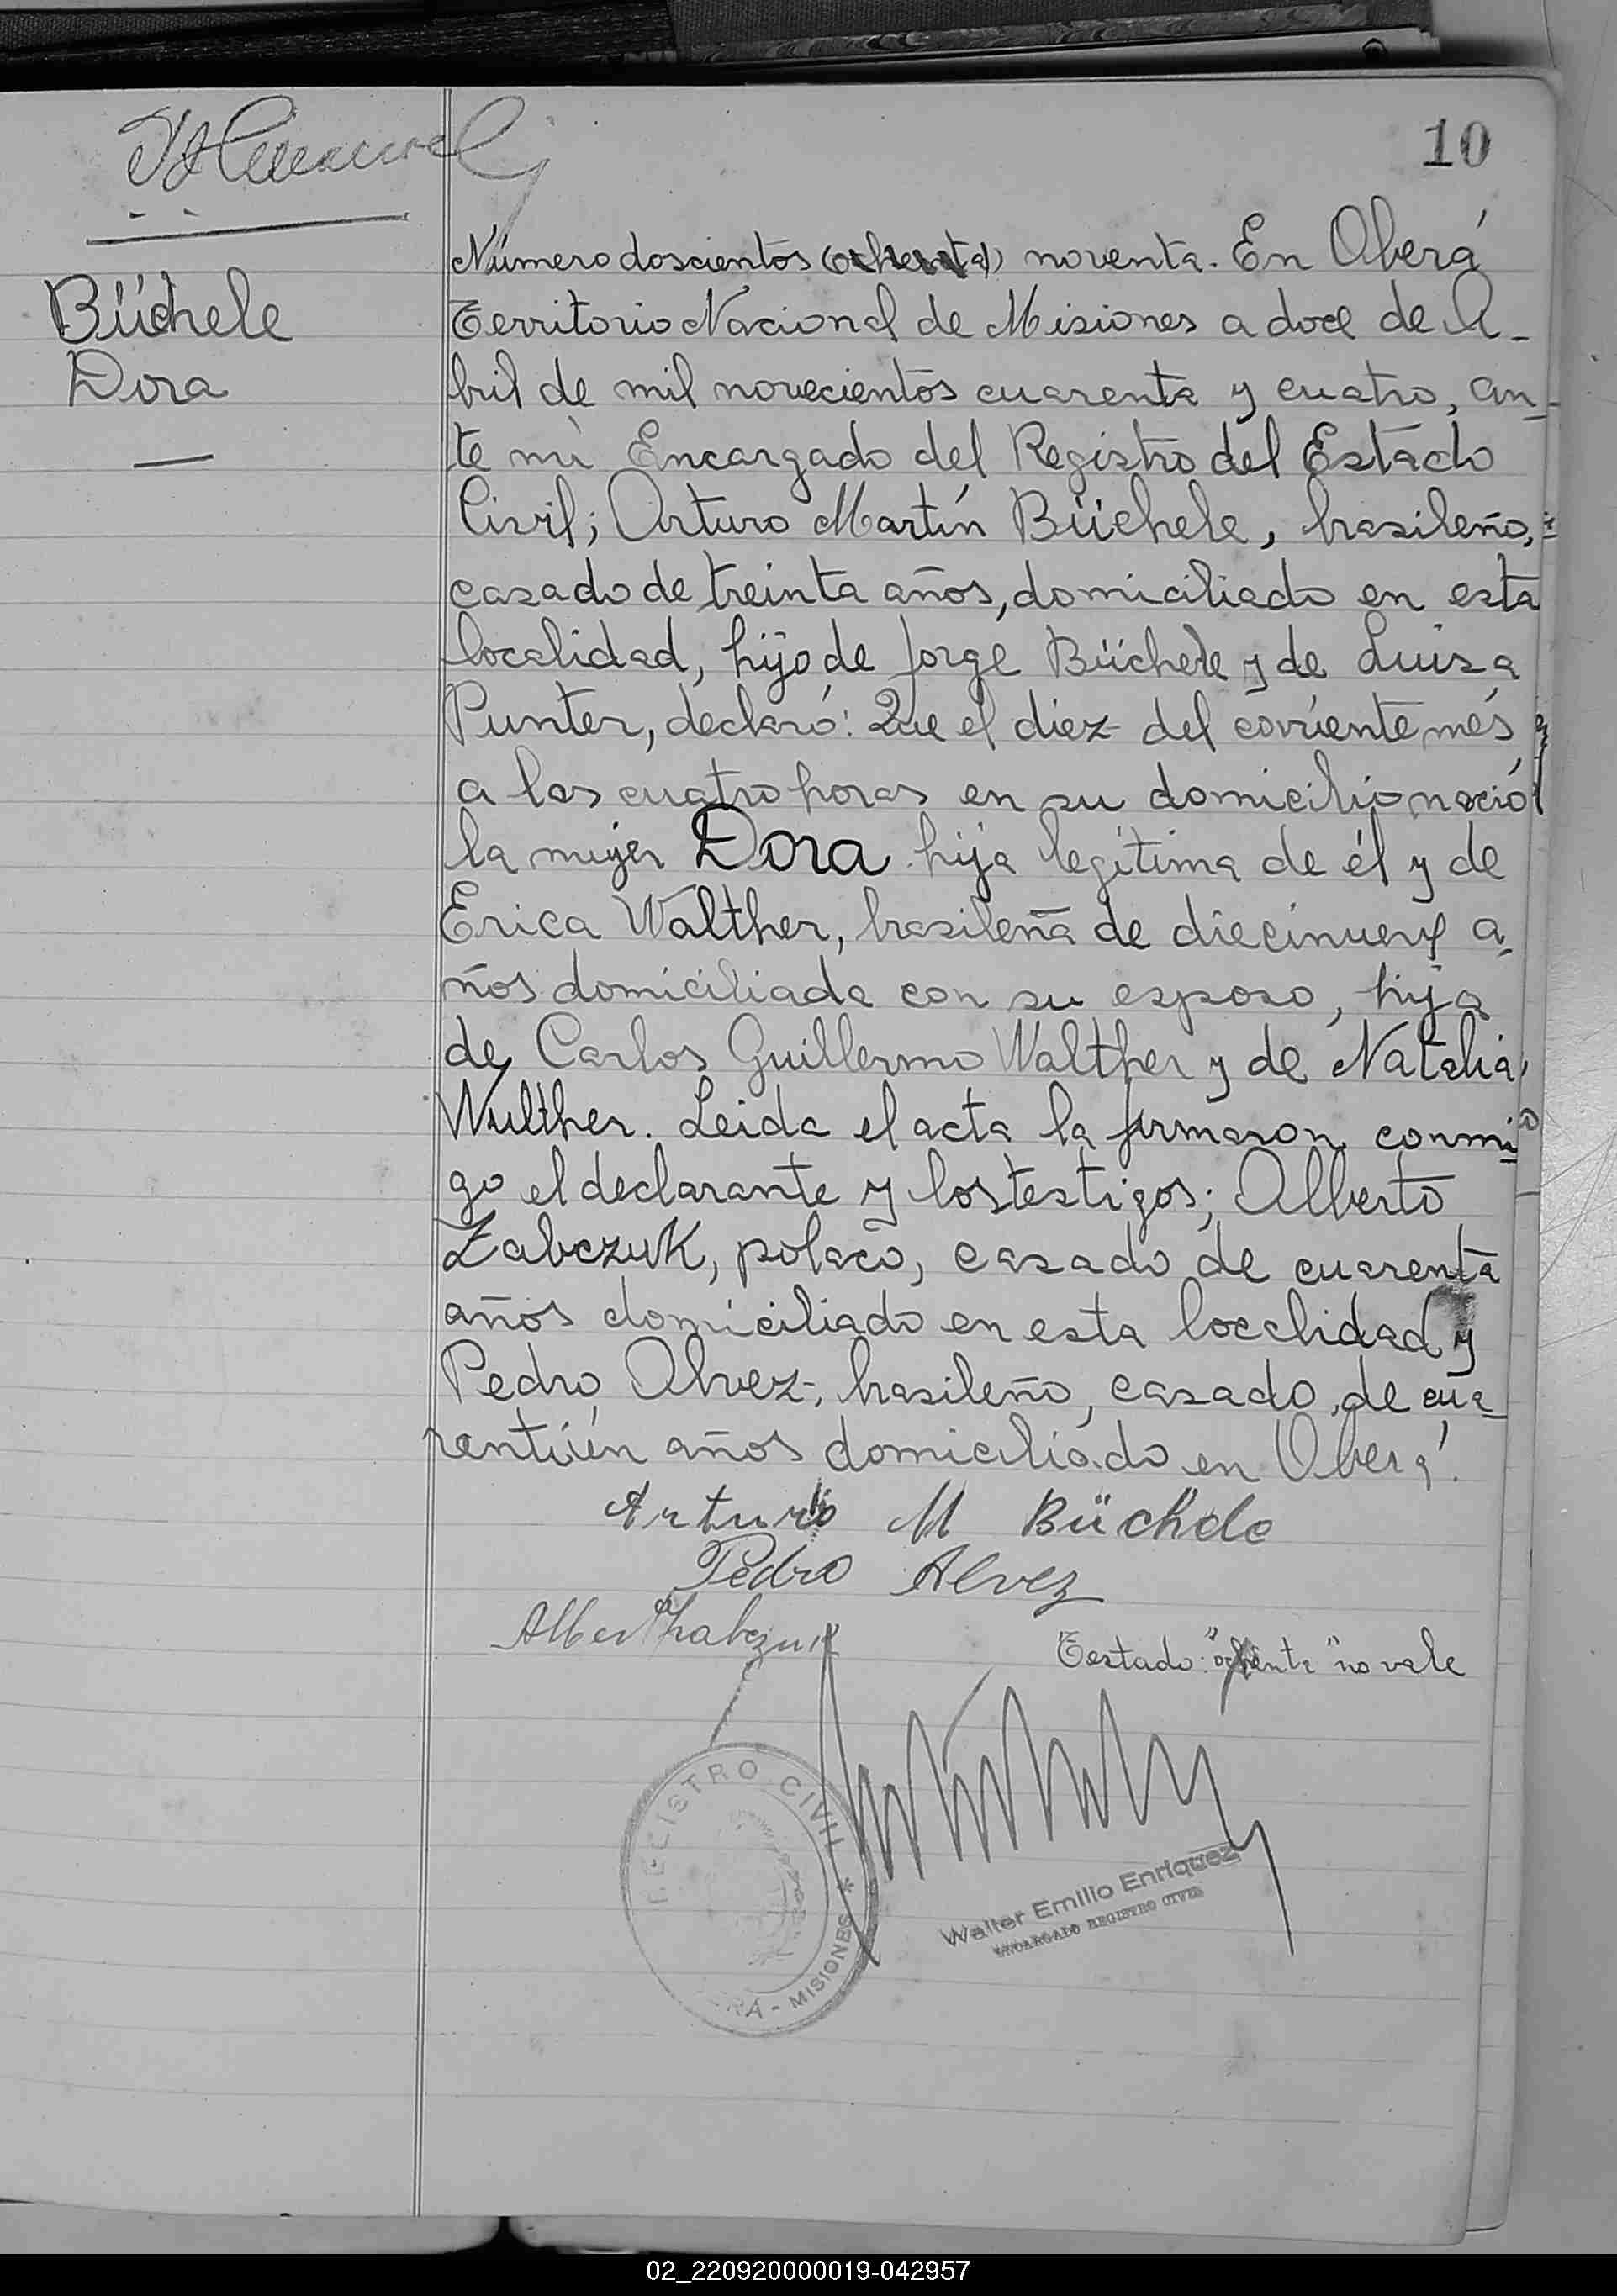 10
Büchele
Dora
Número doscientos (ochenta) noventa. En Oberá
Territorio Nacional de Misiones a doce de A-
bril de mil novecientos cuarenta y cuatro, an-
te mi Encargado del Registro del Estado
Civil; Arturo Martín Büchele, brasileño,
casado de treinta años, domiciliado en esta
localidad, hijo de Jorge Büchele y de Luisa
Punter, declaró: Que el diez del corriente més
a las cuatro horas en su domicilio nació
la mujer Dora hija legítima de él y de
Erica Walther, brasileña de diecinueve a-
ños domiciliada con su esposo, hija
de Carlos Guillermo Walther y de Natalia
Wulther. Leida el acta la firmaron conmi-
go el declarante y los testigos; Alberto
Zabczuk, polaco, casado de cuarenta
años domiciliado en esta localidad y
Pedro Alvez, brasileño, casado, de cua-
rentiún años domiciliado en Oberá.
Arturo M Büchele
Pedro Alvez
Testado: "ochenta" no vale
REGISTRO CIVIL *
RÁ - MISIONES
Walter Emilio Enriquez
ENCARGADO REGISTRO CIVIL
02_220920000019-042957